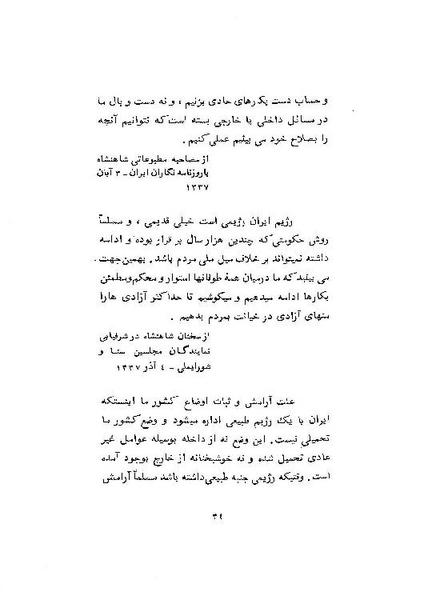 و حساب دست بکارهای حادی بزنیم ، و نه دست و بال ما
در مسائل داخلی یا خارجی بسته است که نتوانیم آنچه
را بصلاح خود می بینیم عملی کنیم .
از مصاحبه مطبوعاتی شاهنشاه
باروزنامه نگاران ایران - ۳ آبان
۱۳۳۷
رژیم ایران رژیمی است خیلی قدیمی ، و مسلماً
روش حکومتی که چندین هزار سال بر قرار بوده و ادامه
داشته نمیتواند بر خلاف میل ملی مردم باشد . بهمین جهت
می بینید که ما درمیان همهٔ طوفانها استوار و محکم و مطمئن
بکارها ادامه میدهیم و میکوشیم تا حد اکثر آزادی ها را
منهای آزادی در خیانت بمردم بدهیم .
از سخنان شاهنشاه در شرفیابی
نمایندگان مجلسین سنا و
شورایملی - ٤ آذر ۱۳۳۷
علت آرامش و ثبات اوضاع کشور ما اینستکه
ایران با یک رژیم طبیعی اداره میشود و وضع کشور ما
تحمیلی نیست . این وضع نه از داخله بوسیله عوامل غیر
عادی تحمیل شده و نه خوشبختانه از خارج بوجود آمده
است . وقتیکه رژیمی جنبه طبیعی داشته باشد مسلماً آرامش